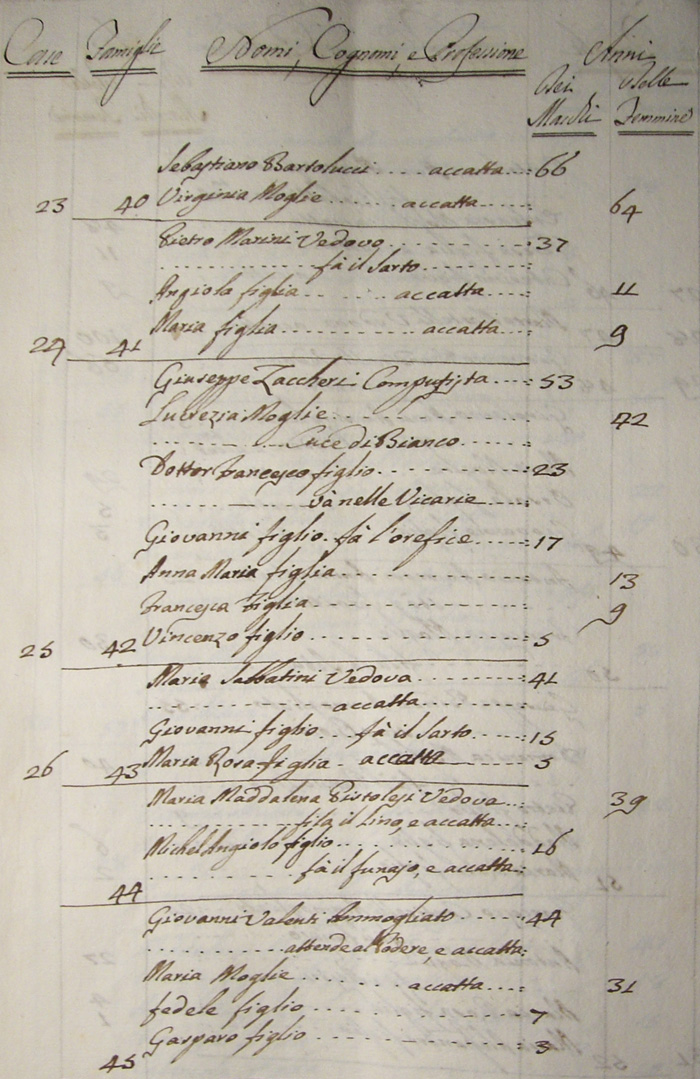 Case Famiglie Nomi, Cognomi, e Professione Anni
Dei Maschi delle Femmine
Sebastiano Bartolucci .... accatta ...: 66
23 40 Virginia Moglie ....... accatta ....: 64
Pietro Marini Vedovo .......... 37
............... fà il Sarto ........
Angiola figlia ... ... accatta ....: 11
Maria figlia ........... accatta ....: 9
24 41
Giuseppe Zaccheri Computista ....: 53
Lucrezia Moglie .............. 42
............ Cuce di Bianco ......
Dottor Francesco figlio ........... 23
............ và nelle Vicarie .....
Giovanni figlio . fà l'orefice .....: 17
Anna Maria figlia .............. 13
Francesca figlia ................ 9
25 42 Vincenzo figlio ................ 5
Maria Sabbatini Vedova .........: 41
............... accatta ..........
Giovanni figlio ... fà il Sarto .....: 15
26 43 Maria Rosa figlia . accatta : 5
Maria Maddalena Pistolesi Vedova ..: 39
............ fila il Lino, e accatta ....
Michel Angiolo figlio ............. 16
............ fà il funajo, e accatta .:
44
Giovanni Valenti Ammogliato ......: 44
............ attende al Podere, e accatta:
Maria Moglie ......... accatta ....: 31
fedele figlio ................. 7
Gasparo figlio ................ 3
45